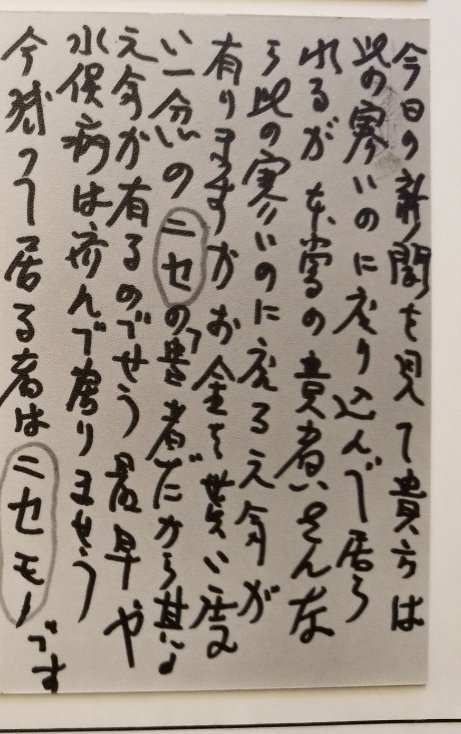 今日の新聞を見て貴方は
此の寒いのに座り込んで居ら
れるが本当の患者さんな
ら此の寒いのに座る元気が
有りますかお金を貰い度
い一念のニセの患者だから其の
元気が有るのでせう最早や
水俣病は済んで居りませう
今残って居る者はニセモノです